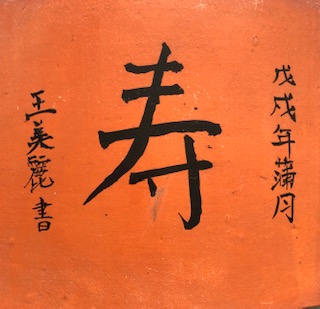 戊戌年蒲月
寿
王美麗書